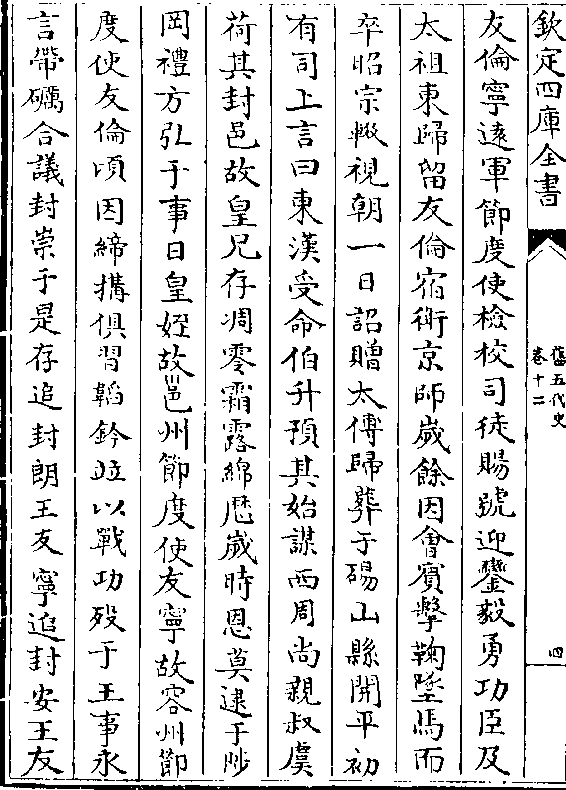 欽定四庫全書
舊五代史
卷十二
四
友倫寧遠軍節度使檢校司徒賜號迎鑾毅勇功臣及
太祖東歸留友倫宿衛京師歲餘因會賓擊鞠墜馬而
卒昭宗輟視朝一日詔贈太傅歸葬于碭山縣開平初
有司上言曰東漢受命伯升預其始謀西周尚親叔虞
荷其封邑故皇兄存凋零霜露綿厯歲時恩莫逮于陟
岡禮方弘于事日皇姪故邕州節度使友寧故容州節
度使友倫頃因締搆俱習韜鈐竝以戰功歿于王事永
言帶礪合議封崇于是存追封朗王友寧追封安王友